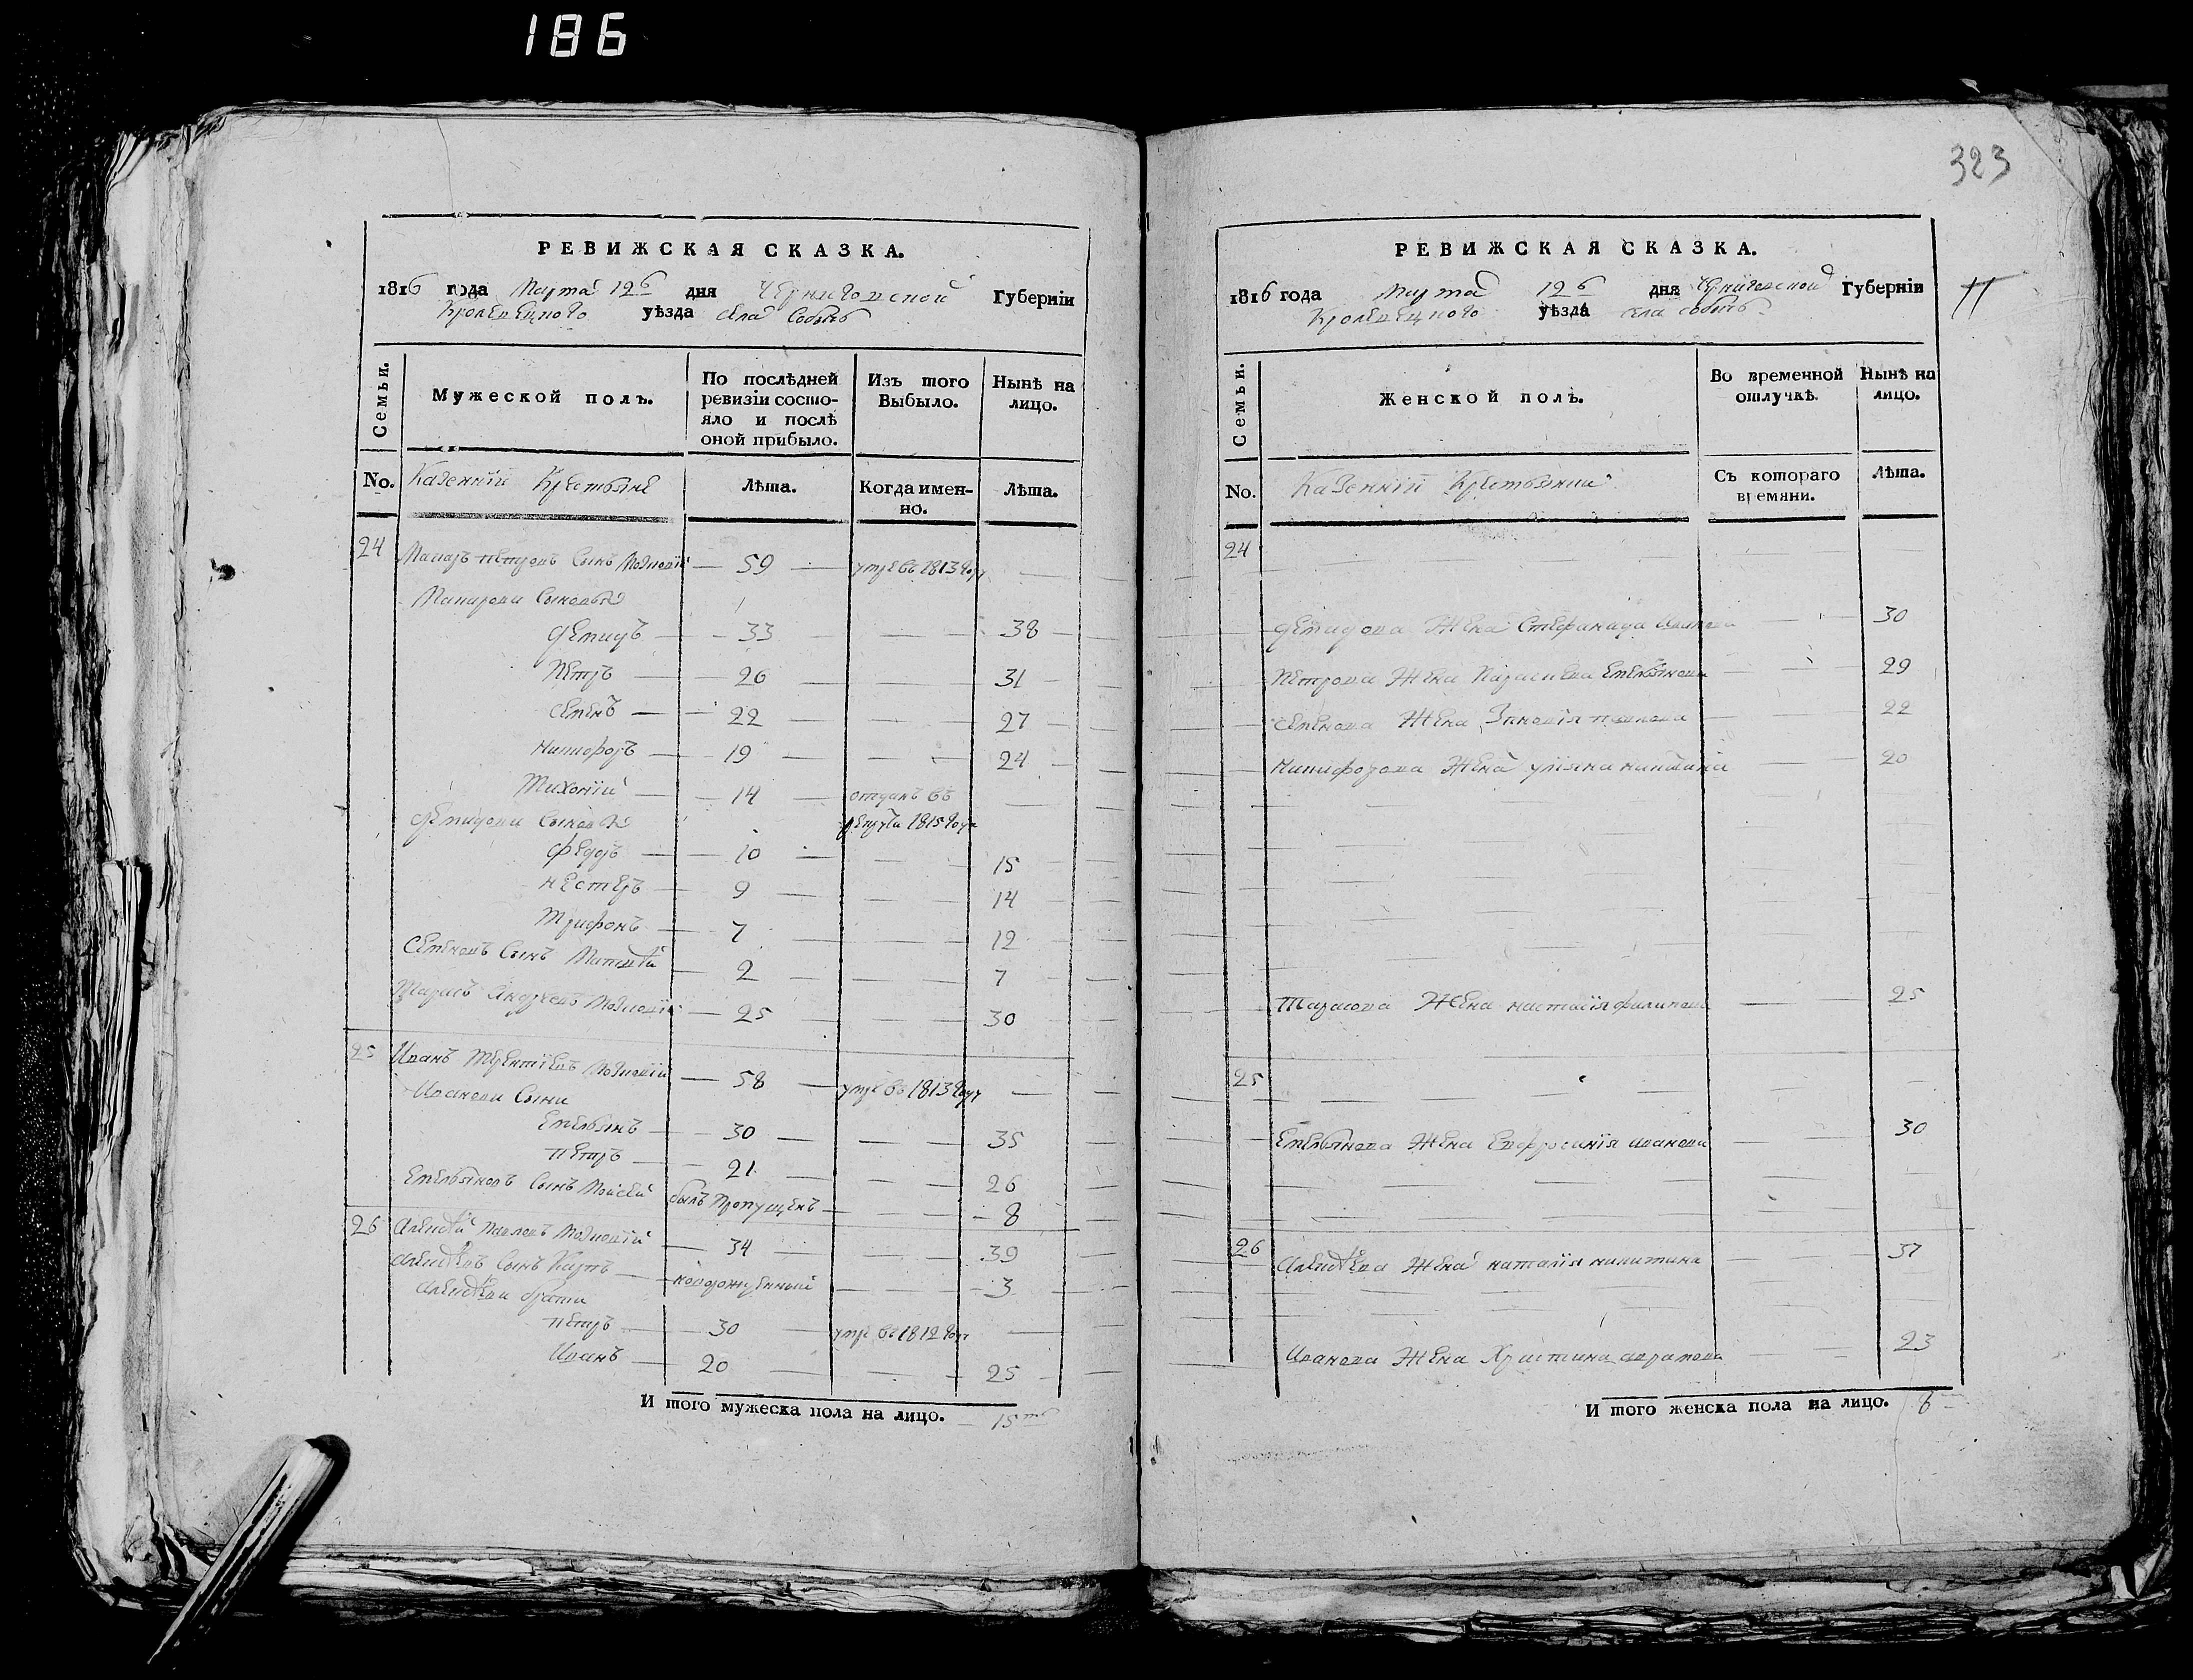 186
323
РЕВИЖСКАЯ СКАЗКА.
1816 года Марта 12 б дня Черниговской Губерніи
Кролевецкого уѣзда села Собичь
Семьи.
Мужеской полъ.
По послѣдней ревизіи состо-
яло и послѣ
оной прибыло.
Изъ того
Выбыло.
Нынѣ на
лицо.
No.
Казенніи Крестьяне
Лѣта.
Когда имен-
но.
Лѣта.
24 Макаръ Петровъ Сынъ 59 умре въ 1813 году
Макарови Сыновья
Демидъ 33 38
Петръ 26 31
Семенъ 22 27
Никифоръ 19 24
Тихоній 14 отданъ въ
рекруты 1815 года
Демидови Сыновья
Федоръ 10 15
Нестеръ 9 14
Трифонъ 7 12
Семеновъ Сынъ Матвѣй 2 7
Тарасъ Андреевъ 25 30
25 Иванъ Терентіевъ 58 умре въ 1813 году
Иванови Сыни
Емельянъ 30 35
Петръ 21 26
Емельяновъ Сынъ Мойсей былъ Пропущенъ 8
26 Алексѣй Павловъ 34 39
Алексѣевъ Сынъ Карпъ новорожденный 3
Алексѣеви брати
Петръ 30 умре въ 1812 году
Иванъ 20 25
И того мужеска пола на лицо. 15
РЕВИЖСКАЯ СКАЗКА.
1816 года Марта 12 б дня Черниговской Губерніи
Кролевецкого уѣзда села Собичь
Семьи.
Женской полъ.
Во временной
отлучкѣ.
Нынѣ на
лицо.
No.
Казенніи Крестьянки
Съ котораго
времяни.
Лѣта.
24
Демидова Жена Стефанида 30
Петрова Жена Параскева Емельянова 29
Семенова Жена Зиновія Павлова 22
Никифорова Жена Уліяна Никитина 20
Тарасова Жена Настасія Филипова 25
25
Емельянова Жена Евфросинія Иванова 30
26 Алексѣева Жена Наталія Никитина 37
Иванова Жена Христина Аврамова 23
И того женска пола на лицо. 8